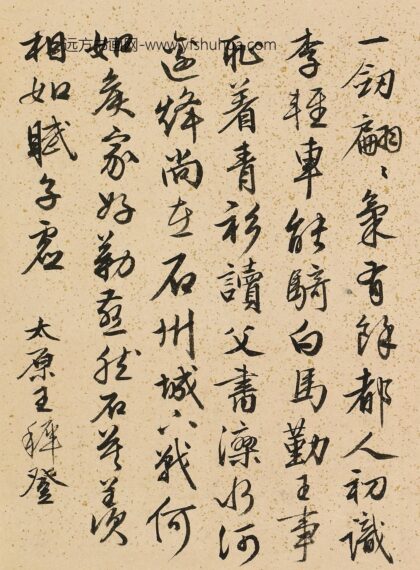 远方书画网-www.yfshuhua.com
一劒翩〻氣有餘都人初識
李輕車能騎白馬勤王事
耻着青衫讀父書水河
邊烽尚在石州城下戰何
如矦家好勒燕然石莫羡
相如賦子虛
太原王穉登